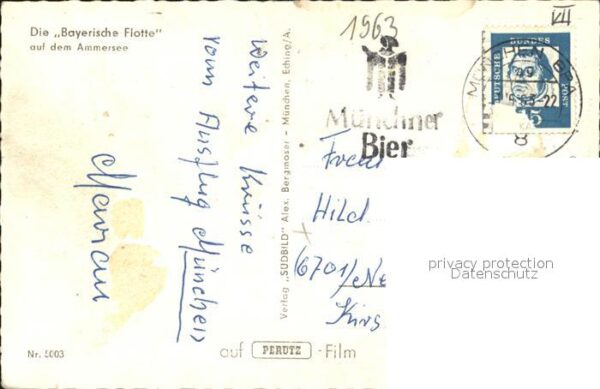 Die „Bayerische Flotte"
auf dem Ammersee
1963
VII
Münchner
Bier
DEUTSCHE BUNDES POST
8
Weitere Grüsse
vom Ausflug München
Marian
Verlag „SÜDBILD" Alex. Bergmoser - München, Eching/A.
Hild
(6701/Ne
Kirs
privacy protection
Datenschutz
Nr. 5003
auf PERUTZ-Film